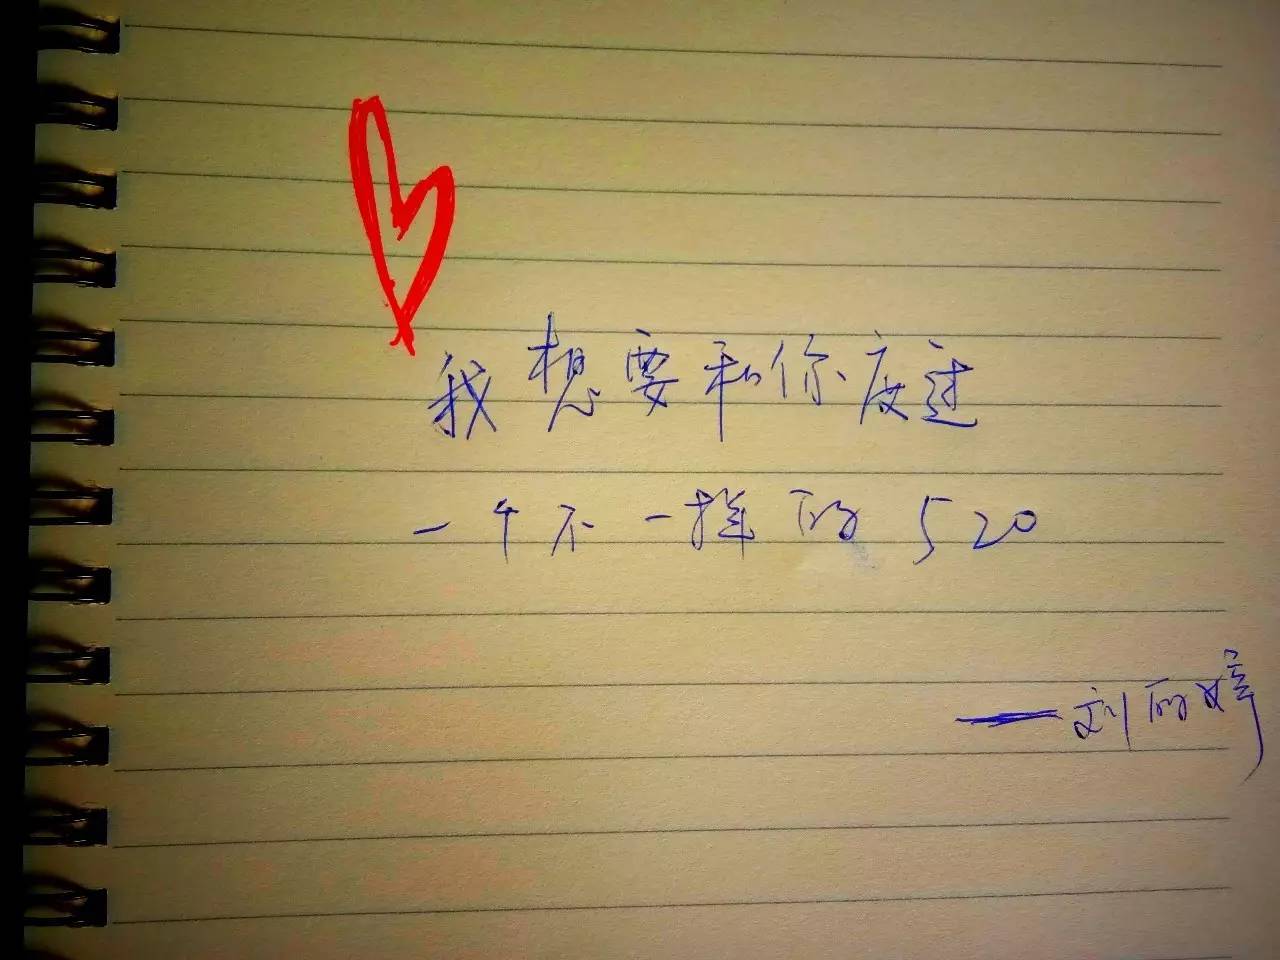 我想要和你度过
一个不一样的520
——刘的